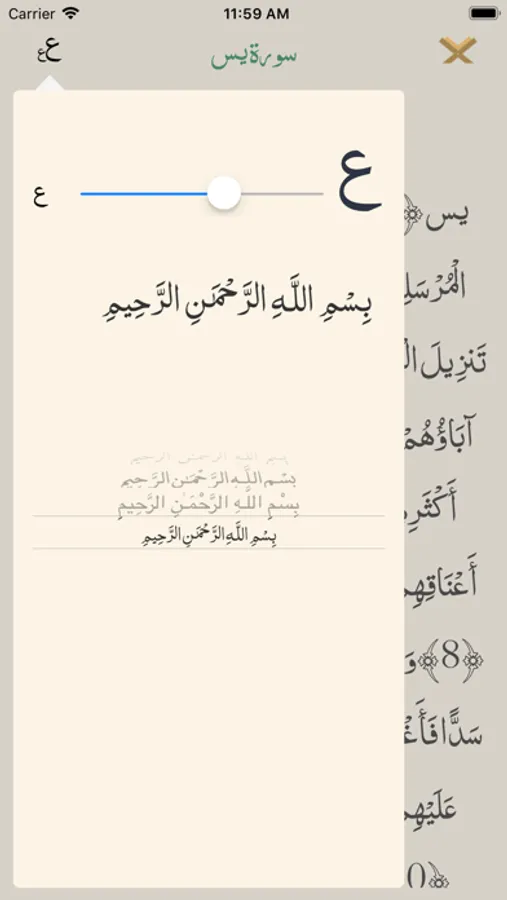 Carrier 11:59 AM
عع
سورة يس
ع
ع
بِسْمِ اللَّهِ الرَّحْمَنِ الرَّحِيمِ
بسم الله الرحمن الرحيم
بِسْمِ اللَّهِ الرَّحْمَنِ الرَّحِيمِ
بِسْمِ اللَّهِ الرَّحْمَنِ الرَّحِيمِ
بِسْمِ اللَّهِ الرَّحْمَنِ الرَّحِيمِ
يس
تَنزِيلَ
آبَاؤُهُمْ
﴿8﴾ وَ
سَدًّا